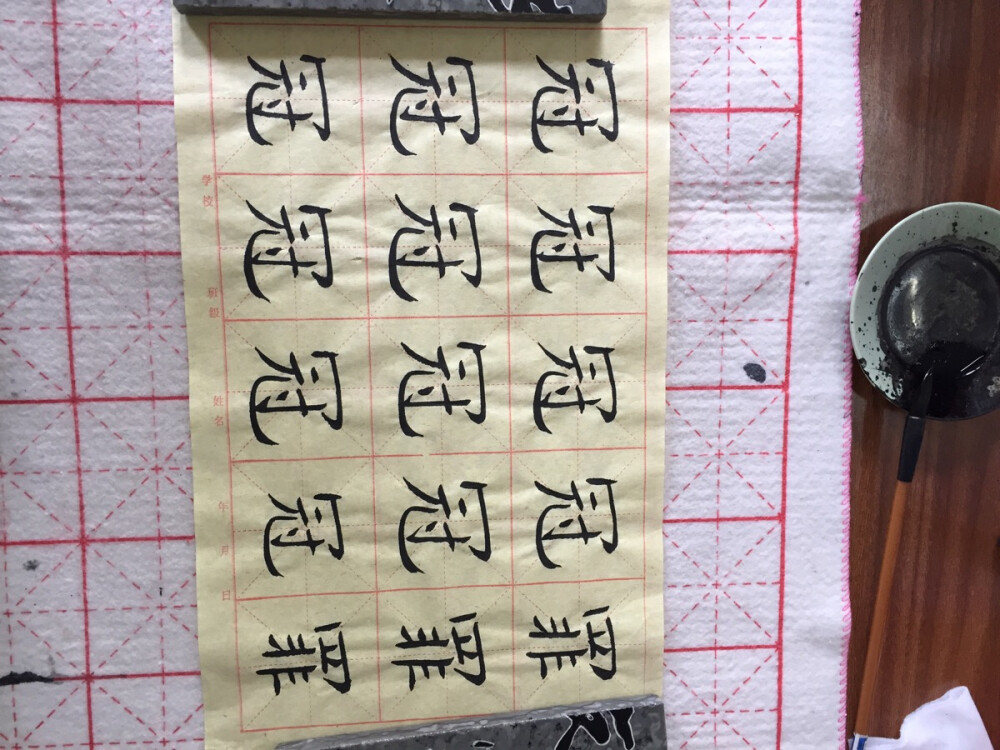 罪罪罪
冠冠冠
冠冠冠
冠冠冠
冠冠冠
學校 班級 姓名 年 月 日